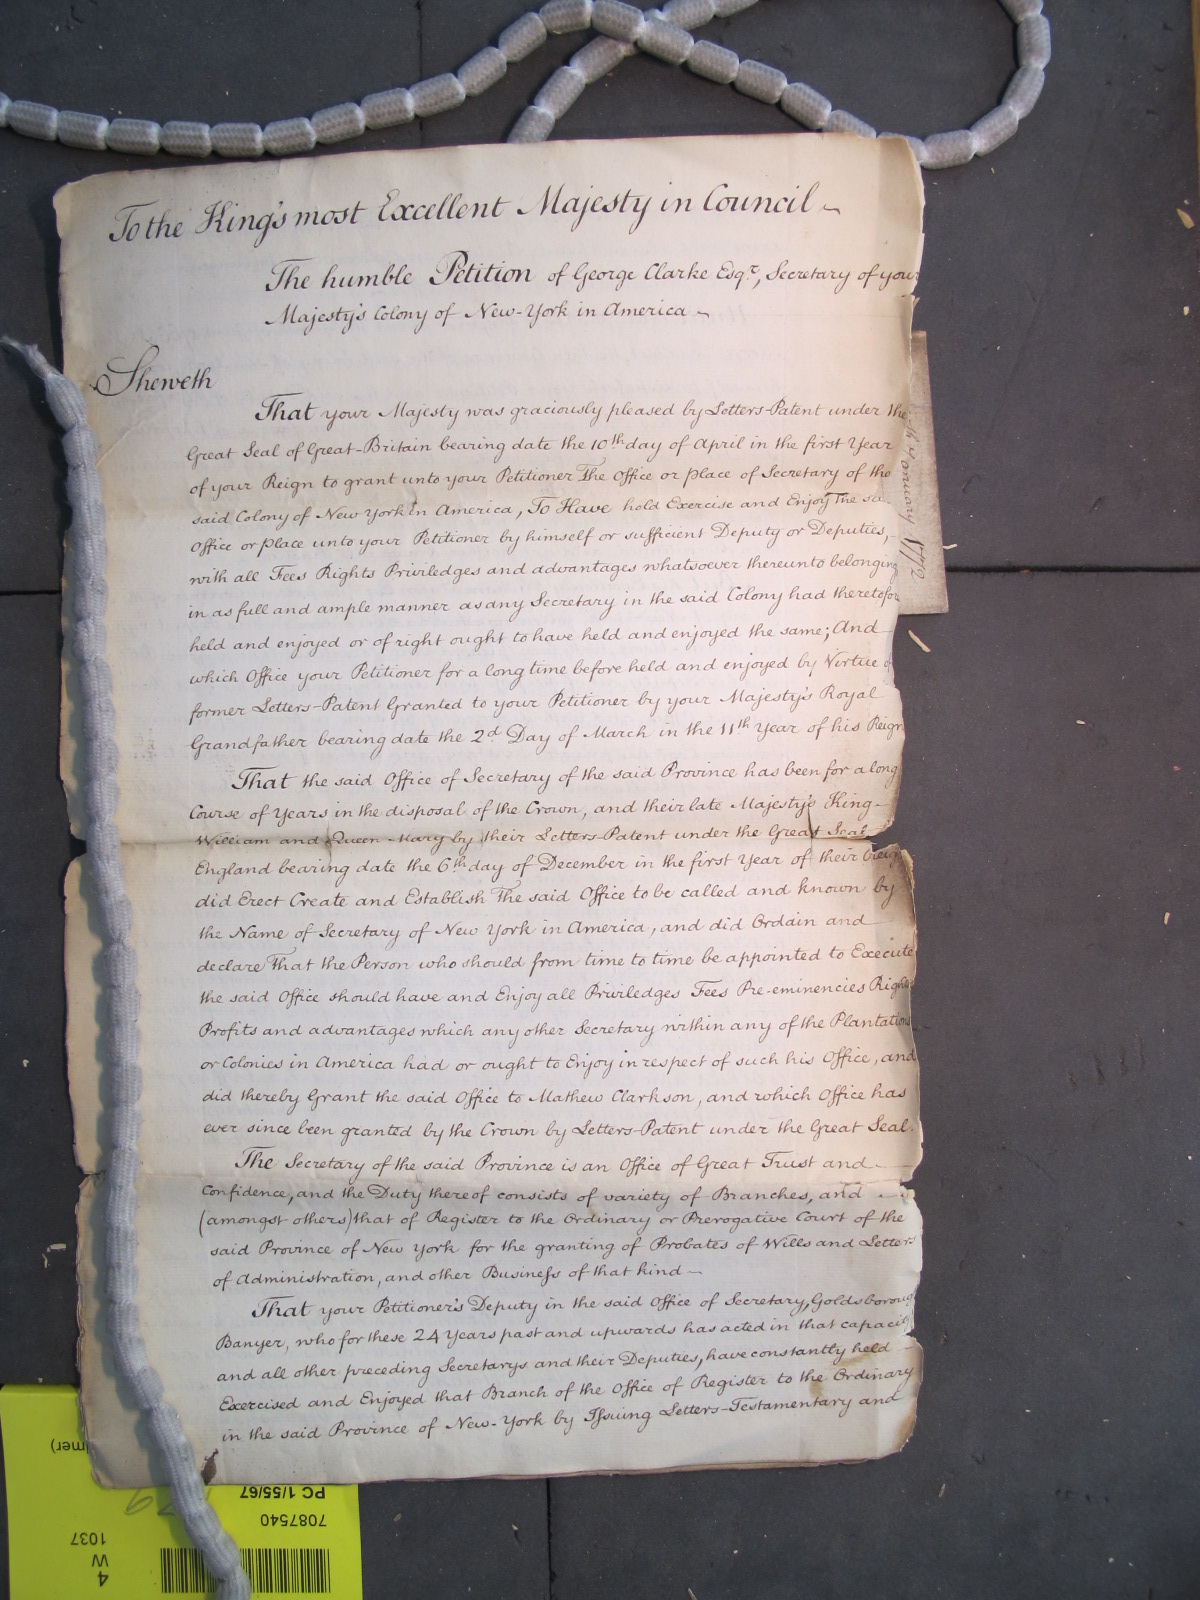 To the King's most Excellent Majesty in Council
The humble Petition of George Clarke Esqr., Secretary of your
Majesty's Colony of New-York in America
Sheweth
That your Majesty was graciously pleased by Letters-Patent under the
Great Seal of Great-Britain bearing date the 10th day of April in the first Year
of your Reign to grant unto your Petitioner The Office or place of Secretary of the
said Colony of New York in America, To Have hold Exercise and Enjoy The sa
Office or place unto your Petitioner by himself or sufficient Deputy or Deputies,
with all Fees Rights Priviledges and advantages whatsoever thereunto belonging
in as full and ample manner as any Secretary in the said Colony had theretofor
held and enjoyed or of right ought to have held and enjoyed the same; And
which Office your Petitioner for a long time before held and enjoyed by Virtue o
former Letters-Patent Granted to your Petitioner by your Majesty's Royal
Grandfather bearing date the 2d Day of March in the 11th Year of his Reign
That the said Office of Secretary of the said Province has been for a long
Course of Years in the disposal of the Crown, and their late Majesty's King
William and Queen Mary by their Letters-Patent under the Great Seal
England bearing date the 6th day of December in the first Year of their Reign
did Erect Create and Establish The said Office to be called and known by
the Name of Secretary of New York in America, and did Ordain and
declare That the Person who should from time to time be appointed to Execute
the said Office should have and Enjoy all Priviledges Fees Pre-eminencies Rights
Profits and advantages which any other Secretary within any of the Plantations
or Colonies in America had or ought to Enjoy in respect of such his Office, and
did thereby Grant the said Office to Mathew Clarkson, and which Office has
ever since been granted by the Crown by Letters-Patent under the Great Seal.
The Secretary of the said Province is an Office of Great Trust and
Confidence, and the Duty thereof consists of variety of Branches, and
(amongst others) that of Register to the Ordinary or Prerogative Court of the
said Province of New York for the granting of Probates of Wills and Letters
of Administration, and other Business of that kind
That your Petitioner's Deputy in the said Office of Secretary, Goldsborough
Banyer, who for these 24 Years past and upwards has acted in that capacity
and all other preceding Secretarys and their Deputies, have constantly held
Exercised and Enjoyed that Branch of the Office of Register to the Ordinary
in the said Province of New-York by Issuing Letters-Testamentary and
1772
PC 1/55/67
7087540
1037
W
4